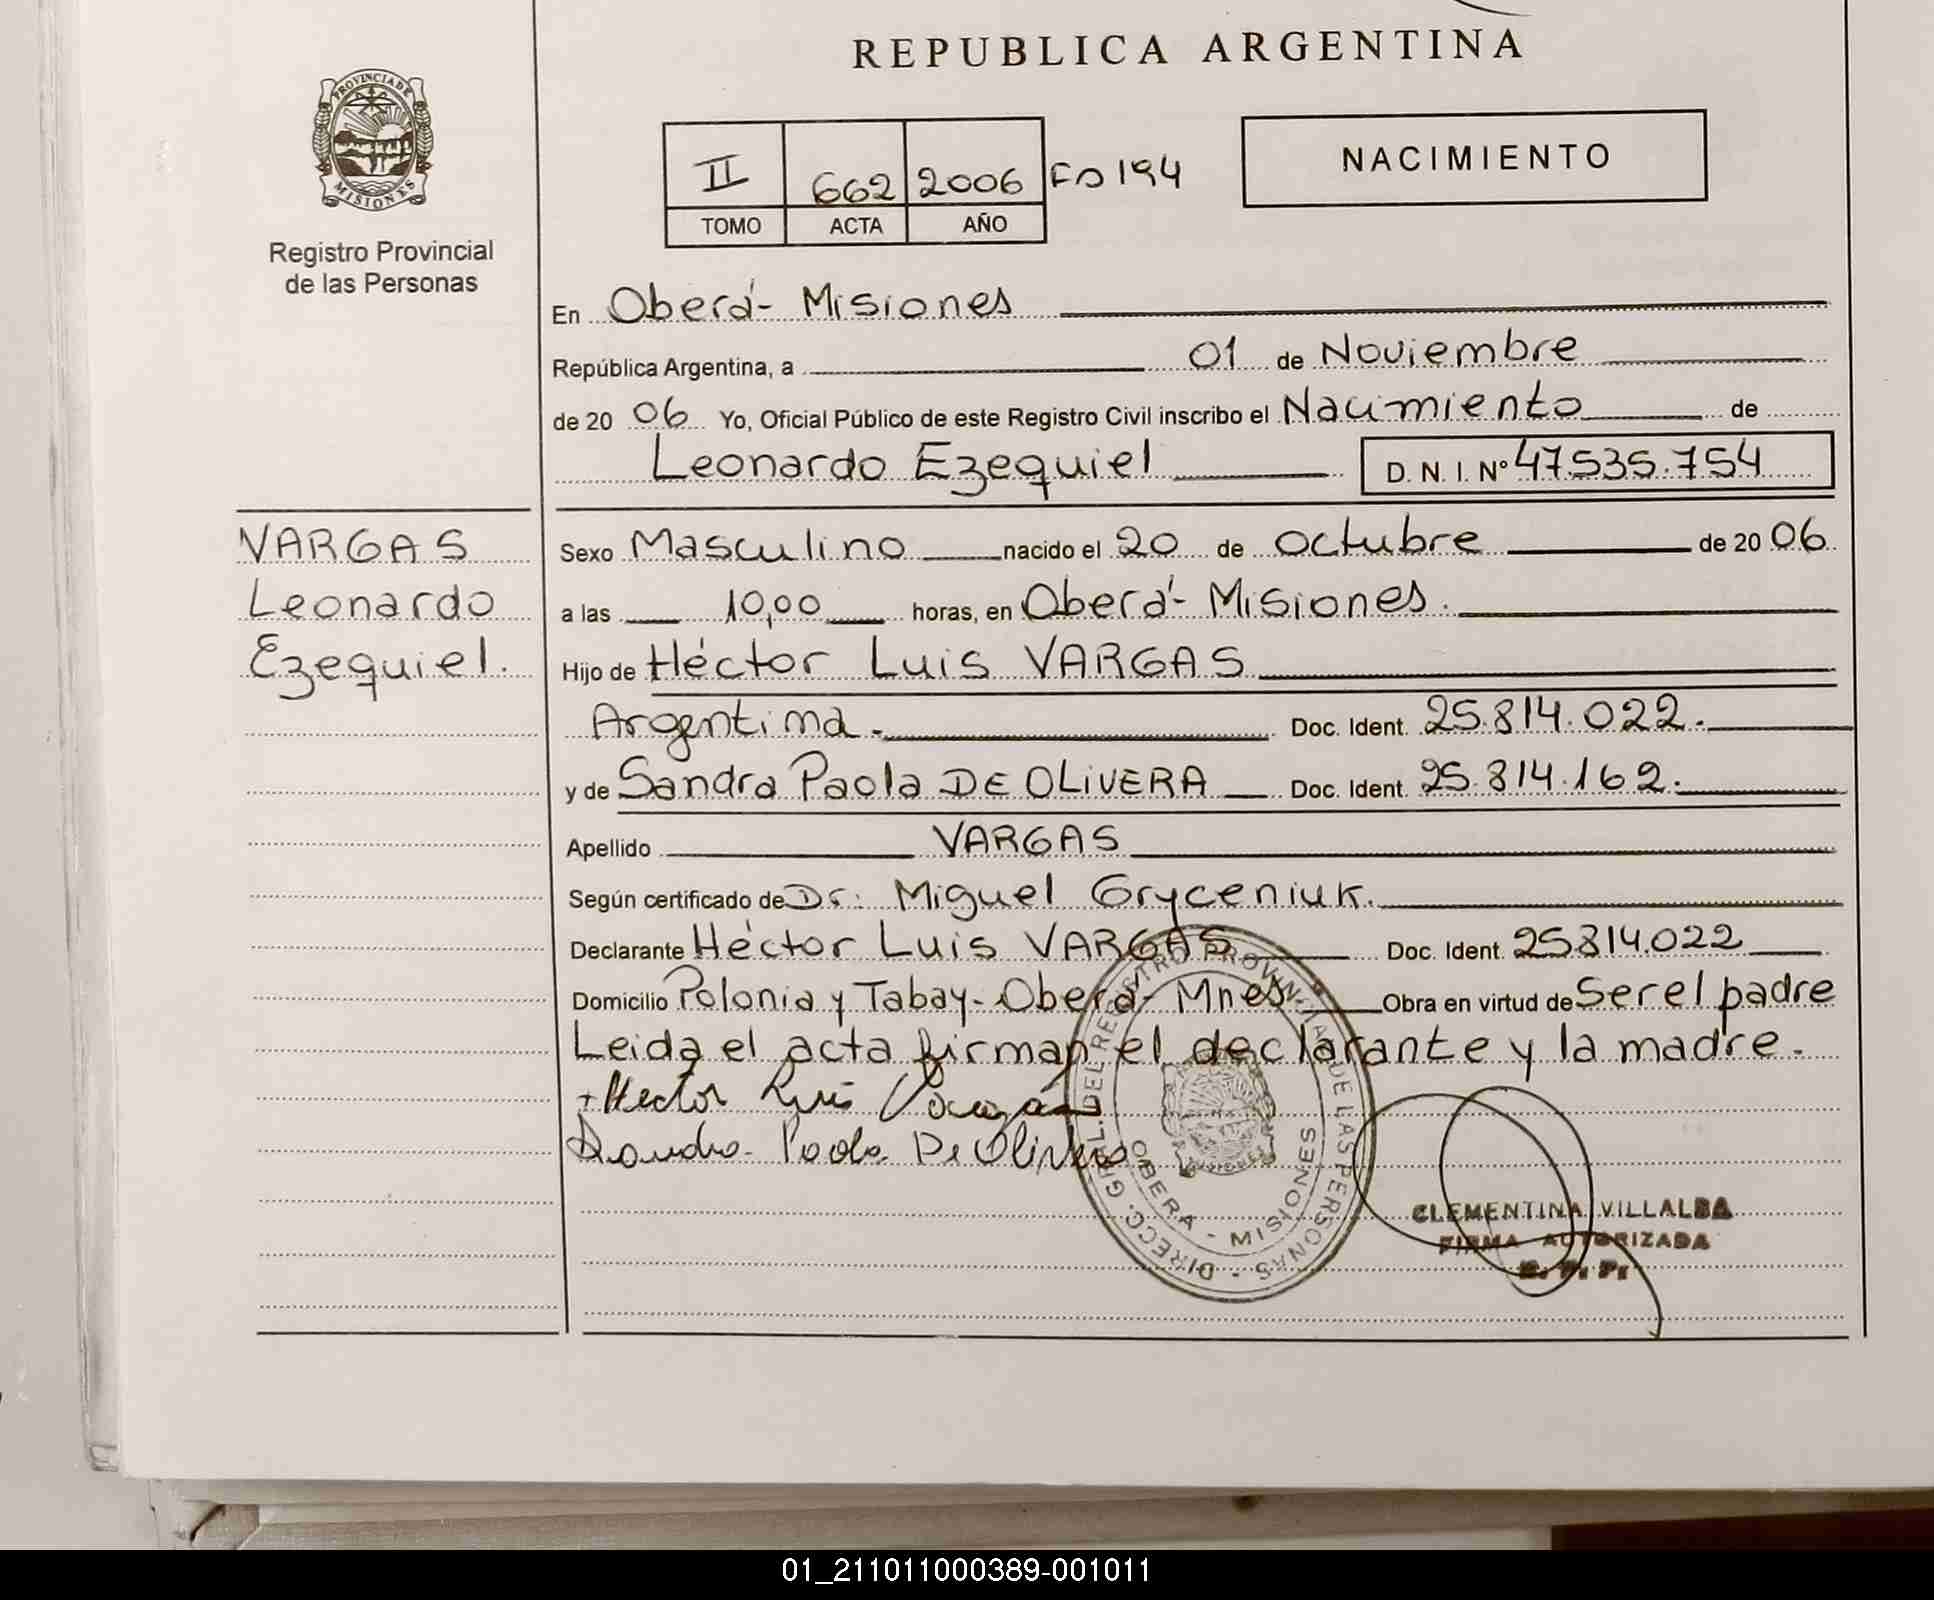 REPUBLICA ARGENTINA
PROVINCIA DE MISIONES
Registro Provincial
de las Personas
II 662 2006 Fo 194
TOMO ACTA AÑO
NACIMIENTO
En Oberá - Misiones
República Argentina, a 01 de Noviembre
de 20 06 Yo, Oficial Público de este Registro Civil inscribo el Nacimiento de
Leonardo Ezequiel D. N. I. Nº 47.535.754
VARGAS
Leonardo
Ezequiel.
Sexo Masculino nacido el 20 de Octubre de 20 06
a las 10,00 horas, en Oberá - Misiones.
Hijo de Héctor Luis VARGAS
Argentina. Doc. Ident. 25.814.022.
y de Sandra Paola DE OLIVERA Doc. Ident. 25.814.162.
Apellido VARGAS
Según certificado de Dr. Miguel Gryceniuk.
Declarante Héctor Luis VARGAS Doc. Ident. 25814.022
Domicilio Polonia y Tabay - Oberá - Mnes. Obra en virtud de Ser el padre
Leida el acta firman el declarante y la madre.
+ Hector Luis Vargas
Sandra Paola De Olivera
DIRECC. GRAL. DEL REGISTRO PROVINCIAL DE LAS PERSONAS
OBERA - MISIONES
CLEMENTINA VILLALBA
FIRMA AUTORIZADA
R. P. P.
01_211011000389-001011